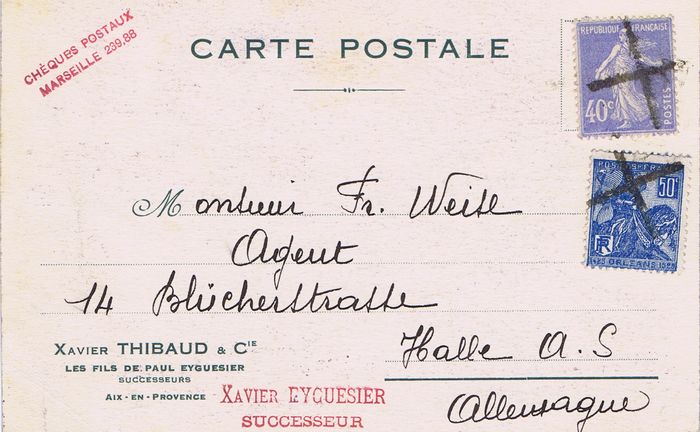 CHÈQUES POSTAUX
MARSEILLE 239,88
CARTE POSTALE
REPUBLIQUE FRANÇAISE
40c
POSTES
POSTES FRANCE
50c
RF
1429 ORLEANS 1929
Monsieur Fr. Weise
Agent
14 Blücherstrasse
Halle A. S
Allemagne
XAVIER THIBAUD & CIE
LES FILS DE PAUL EYGUESIER
SUCCESSEURS
AIX-EN-PROVENCE
XAVIER EYGUESIER
SUCCESSEUR